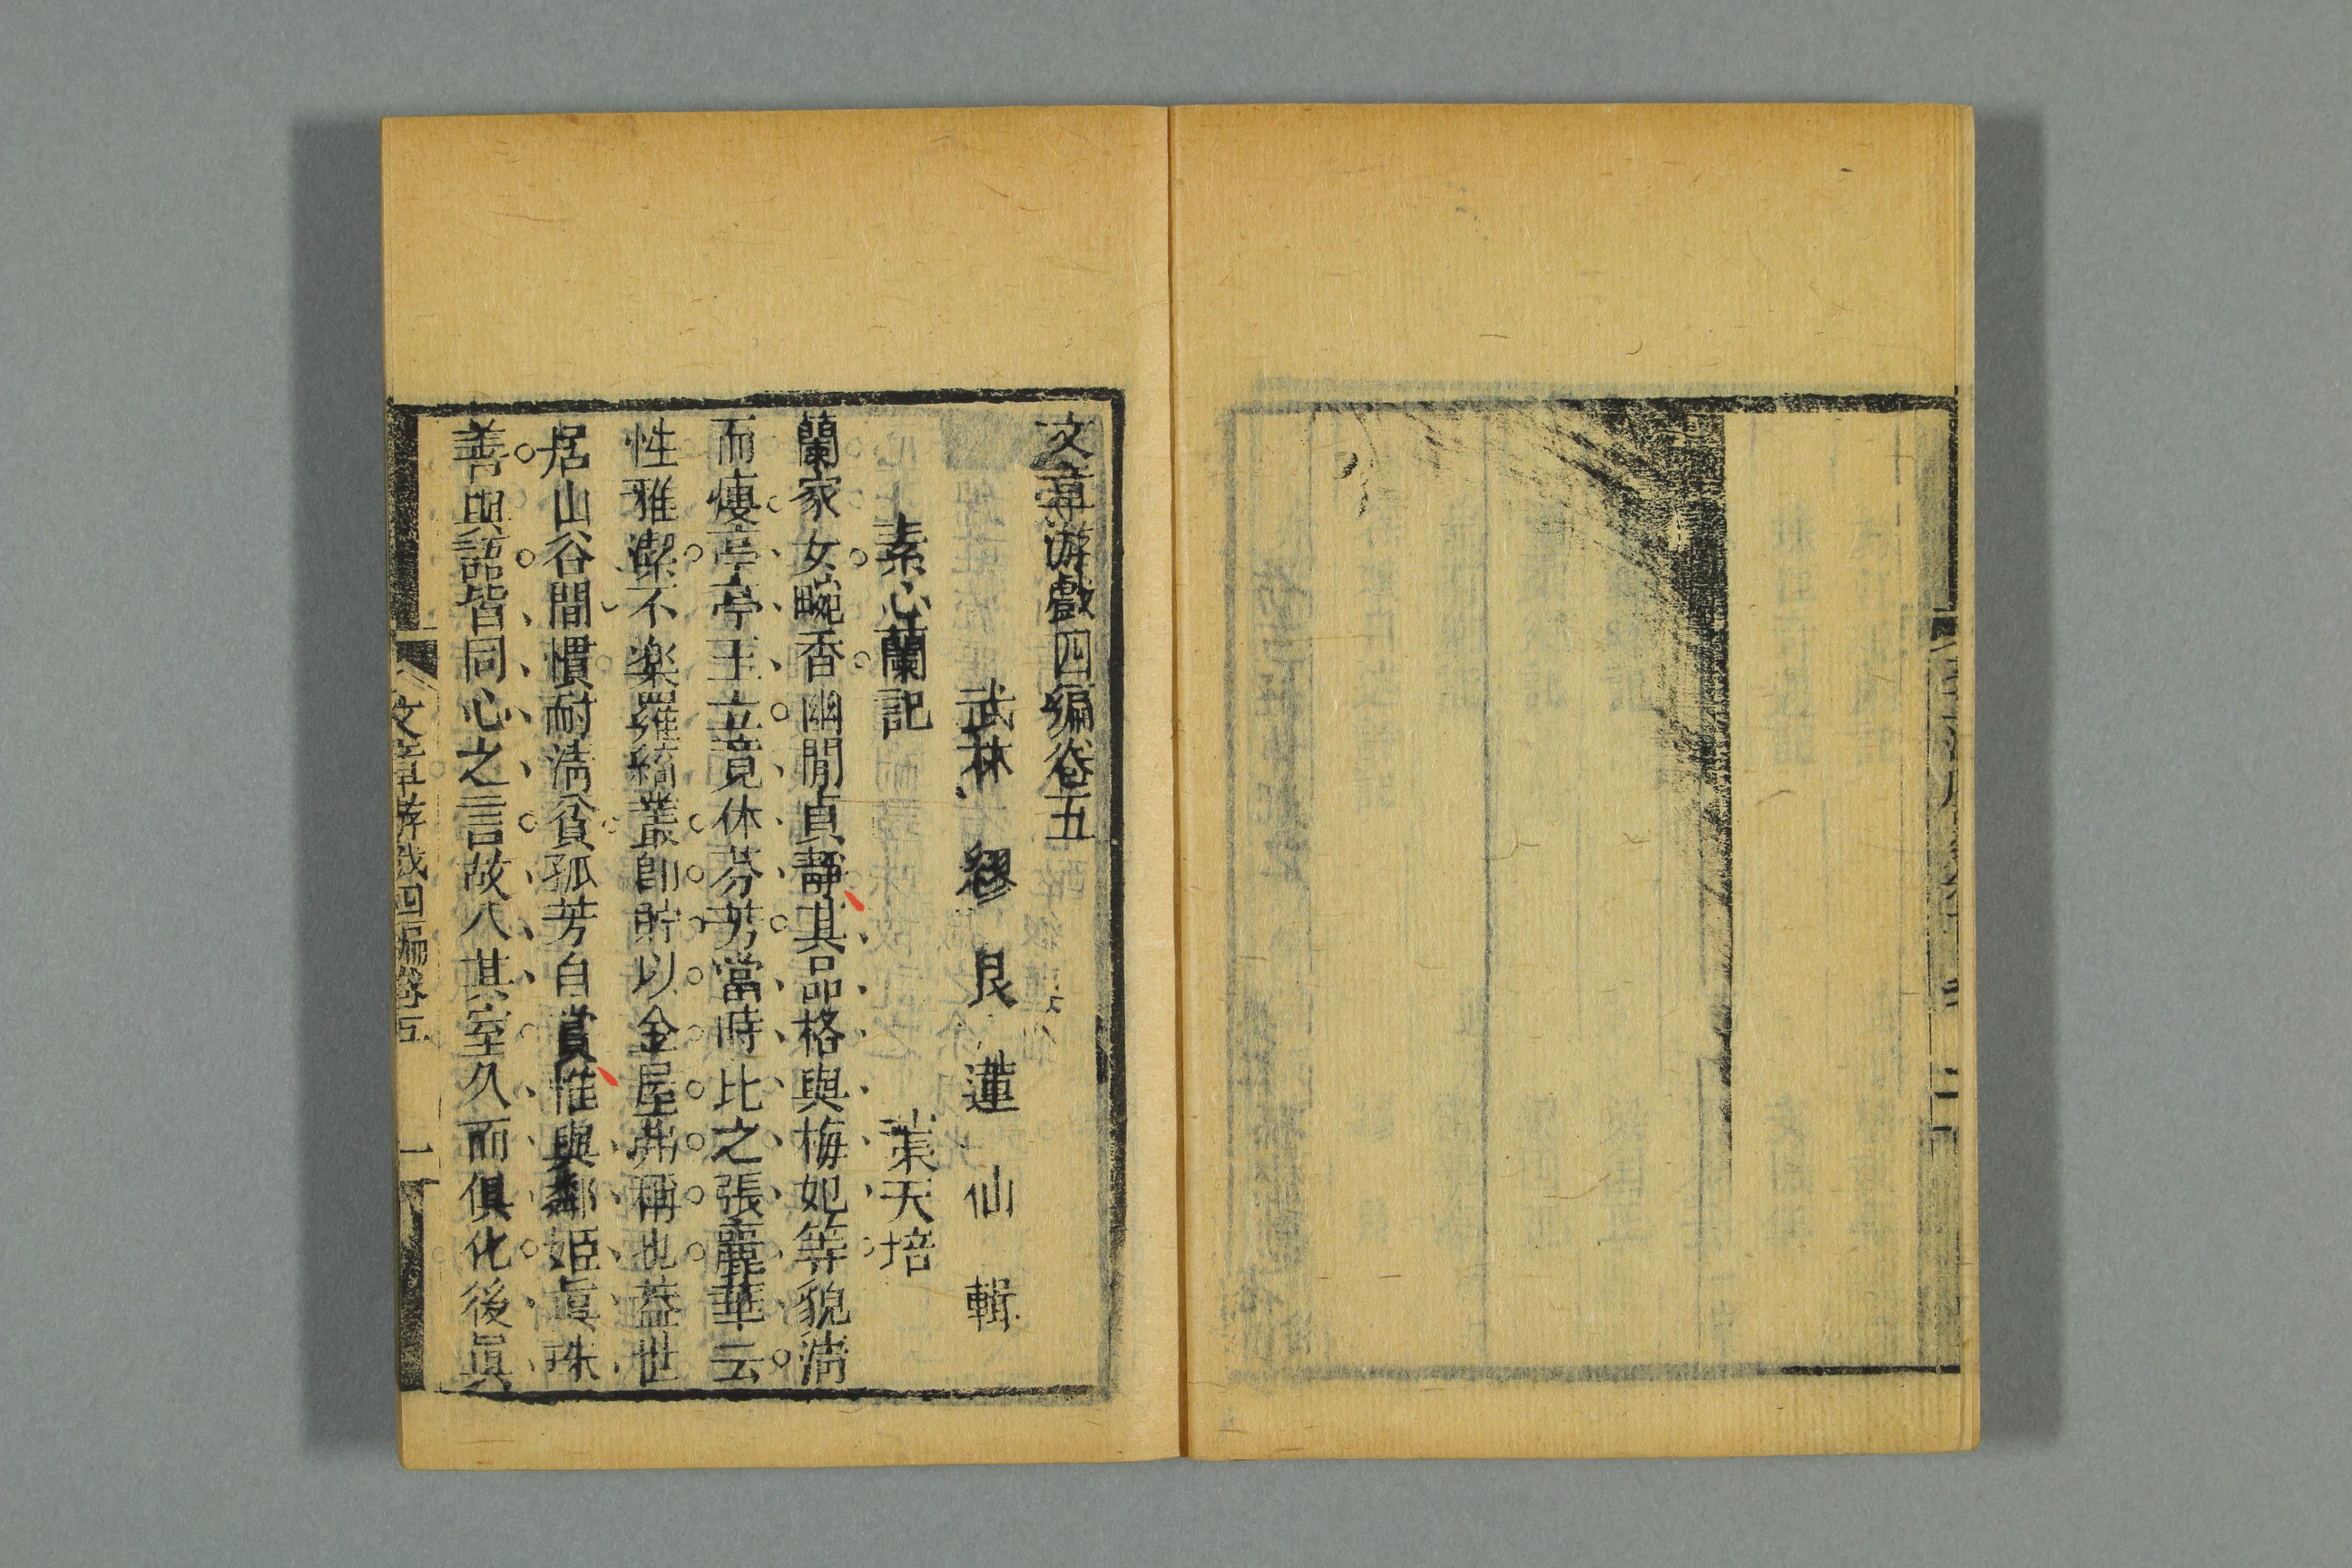 文章游戲四編卷五
武林 繆 艮 蓮 仙 輯
素心蘭記 葉天培
蘭家女畹香幽閒貞靜其品格與梅妃等貌清
而瘦亭亭玉立竟休芬芳當時比之張麗華云
性雅潔不樂羅綺叢卽貯以金屋弗稱也葢世
居山谷間慣耐淸貧孤芳自賞惟與鄭姬眞珠
善與語皆同心之言故入其室久而俱化後眞
文章游戲四編卷五 一